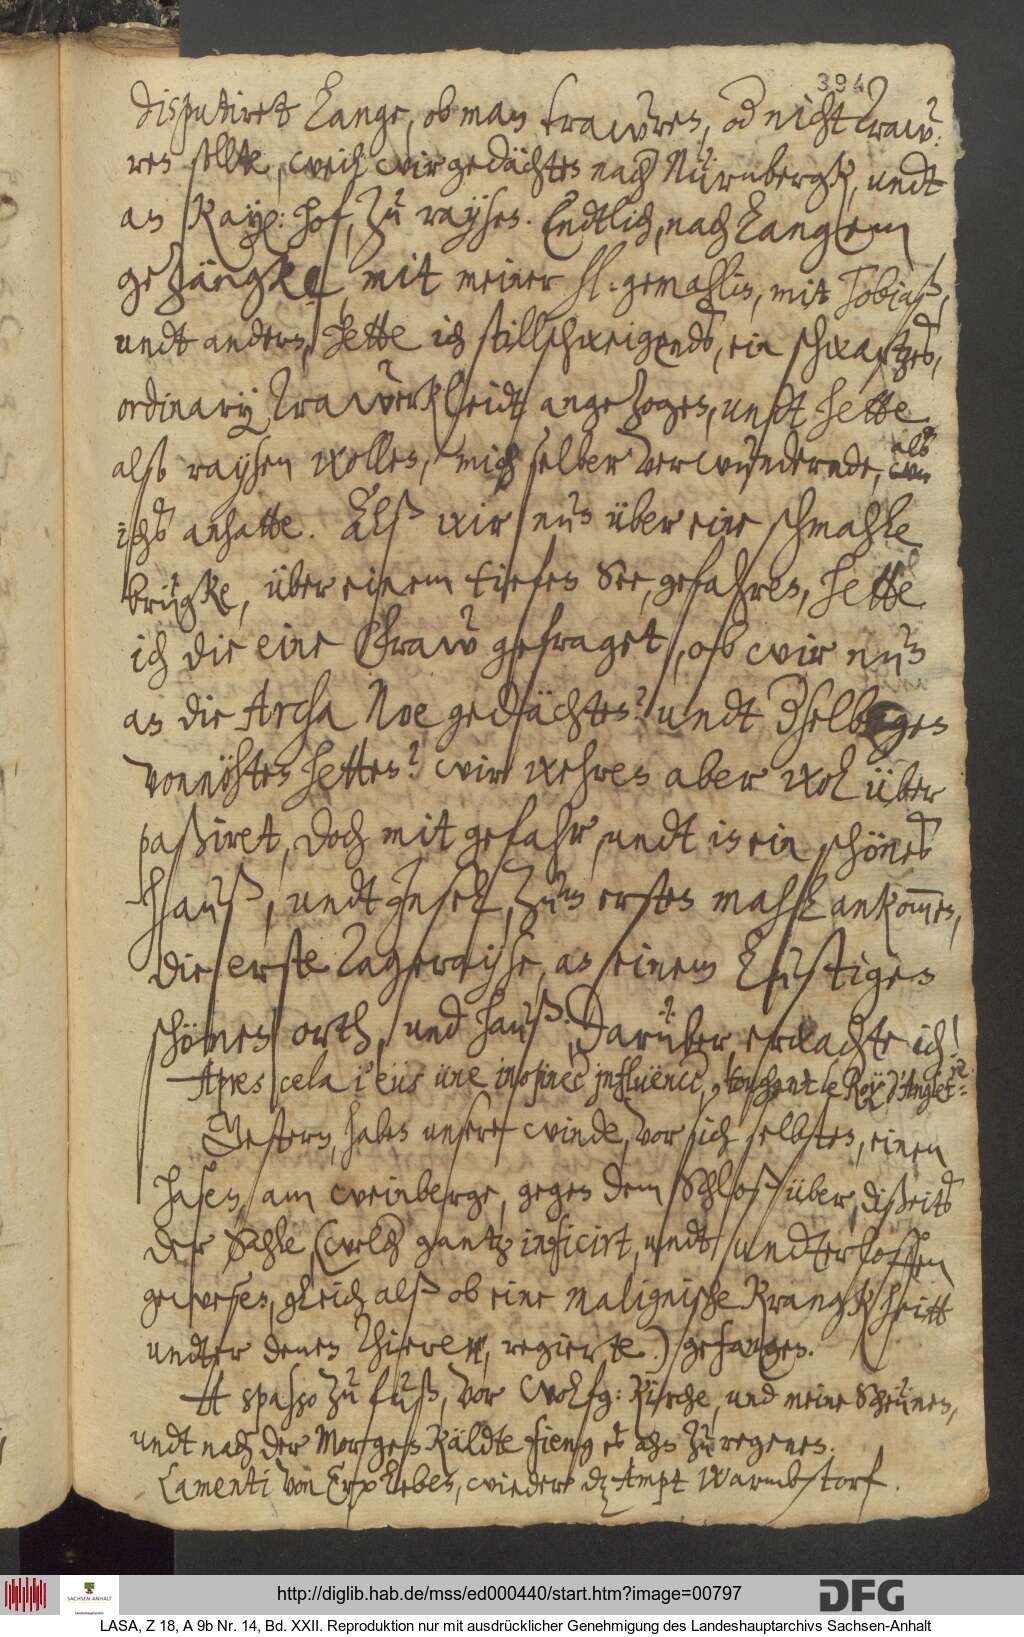 394
disputiret lange, ob man trawren, od nicht traw-
ren sollte, weil wir gedächten nach Nürnbergk, undt
an Kay: hof, zu raysen. Endtlich, nach langem
gezängke, mit meiner hl: gemahlin, mit Tobiaß,
undt andern, hette ich stillschweigends, ein schwartzes,
ordinary Trawerkleidt angezogen, undt hette
also raysen wollen, mich selber verwundernde, als
ichs anhatte. Alß wir nun über eine schmahle
brügke, über einem tiefen See, gefahren, hette
ich die eine Fraw gefraget, ob wir nun
an die Archa Noe gedächten? undt derselbigen
vonnöhten hetten? wir wehren aber wol über
paßiret, doch mit gefahr, undt in ein schönes
Hauß, undt Insel, zum ersten mahl ankom̅en,
die erste Tagerayse, an einem lustigen
schönen orth, und hauß. Darüber, erwachte ich!
Apres cela j'eus üne inopineè influence, touchant le Roy d'Angleterre.
Gestern, haben unsere winde, vor sich selbsten, einen
hasen, am weinberge, gegen dem Schloß über, dißeits
der Sahle, (welch gantz inficirt, undt undterloffen
gewesen, gleich alß ob eine malignische Krangkheitt
undter denen Thieren, regierte.) gefangen.
A spasso zu fuß, vor Wolfg: Kirche, und meine Scheünen,
undt nach der Morgen Käldte fieng es ahn zu regenen.
Lamenti von Erxleben, wieder dz Ampt Warmbstorf.
http://diglib.hab.de/mss/ed000440/start.htm?image=00797
DFG
SACHSEN-ANHALT
Landeshauptarchiv
LASA, Z 18, A 9b Nr. 14, Bd. XXII. Reproduktion nur mit ausdrücklicher Genehmigung des Landeshauptarchivs Sachsen-Anhalt